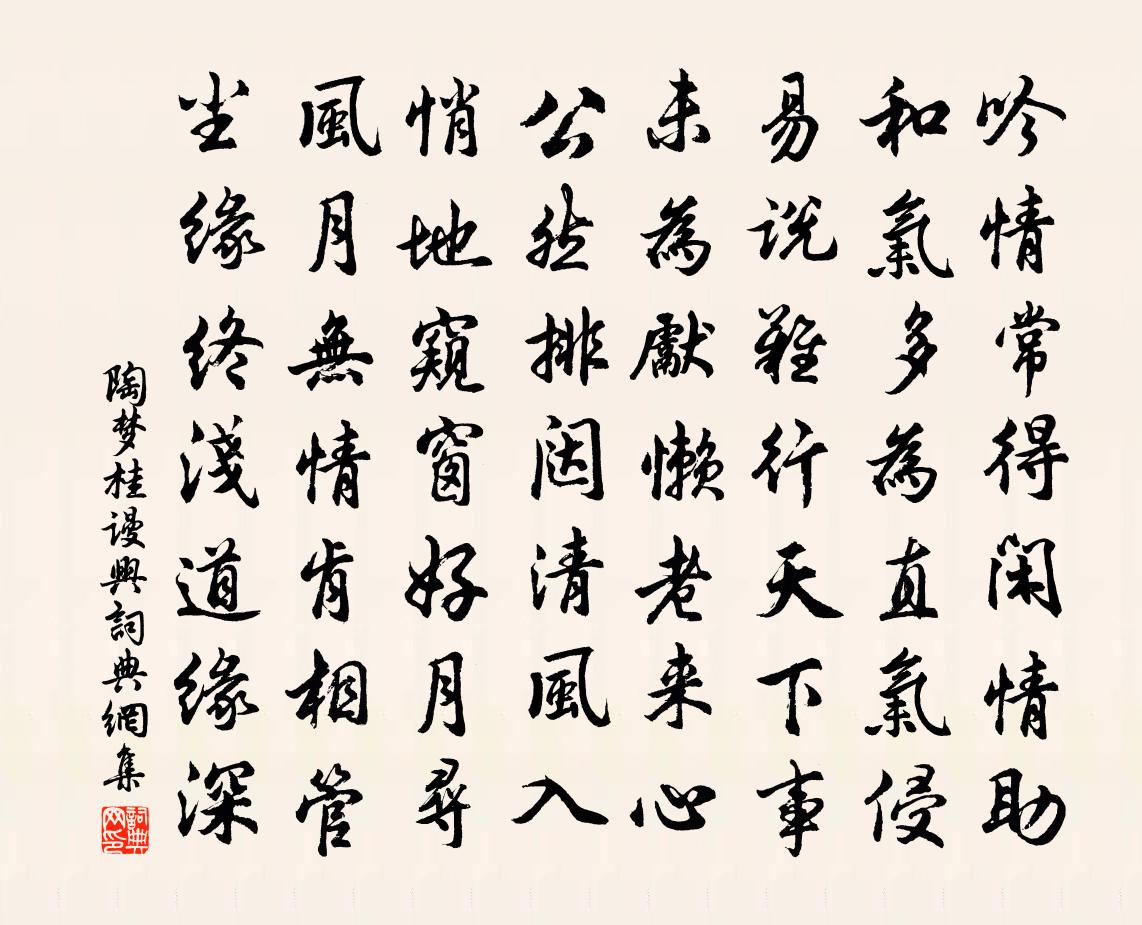 吟情常得閑情助
和氣多為直氣侵
易說難行天下事
未為獻懶老来心
公然排闼清風入
悄地窺窗好月尋
風月無情肯相管
尘緣終淺道緣深
陶梦桂谩興詞典網集
詞典网印